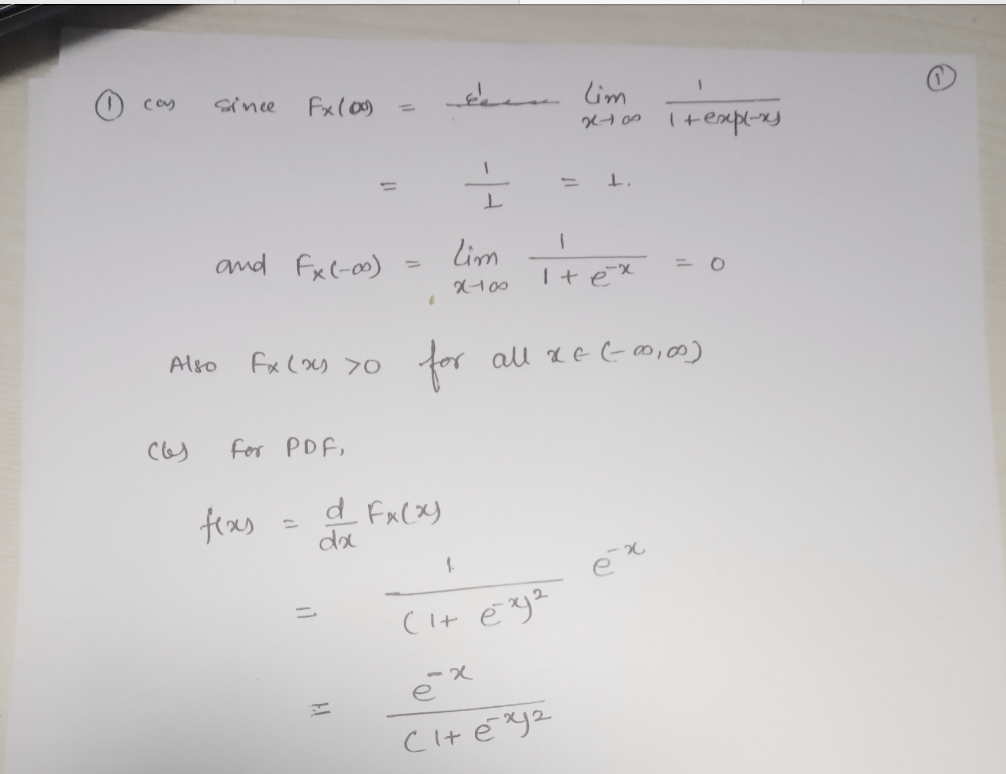 ① (a) since Fx(∞) = lim x→∞ 1/(1+exp(-x)) ①
= 1/1 = 1.
and Fx(-∞) = lim x→∞ 1/(1+e^-x) = 0
Also Fx(x) >0 for all x∈(-∞,∞)
(b) For PDF,
f(x) = d/dx Fx(x)
= 1/(1+e^-x)^2 e^-x
= e^-x/(1+e^-x)^2